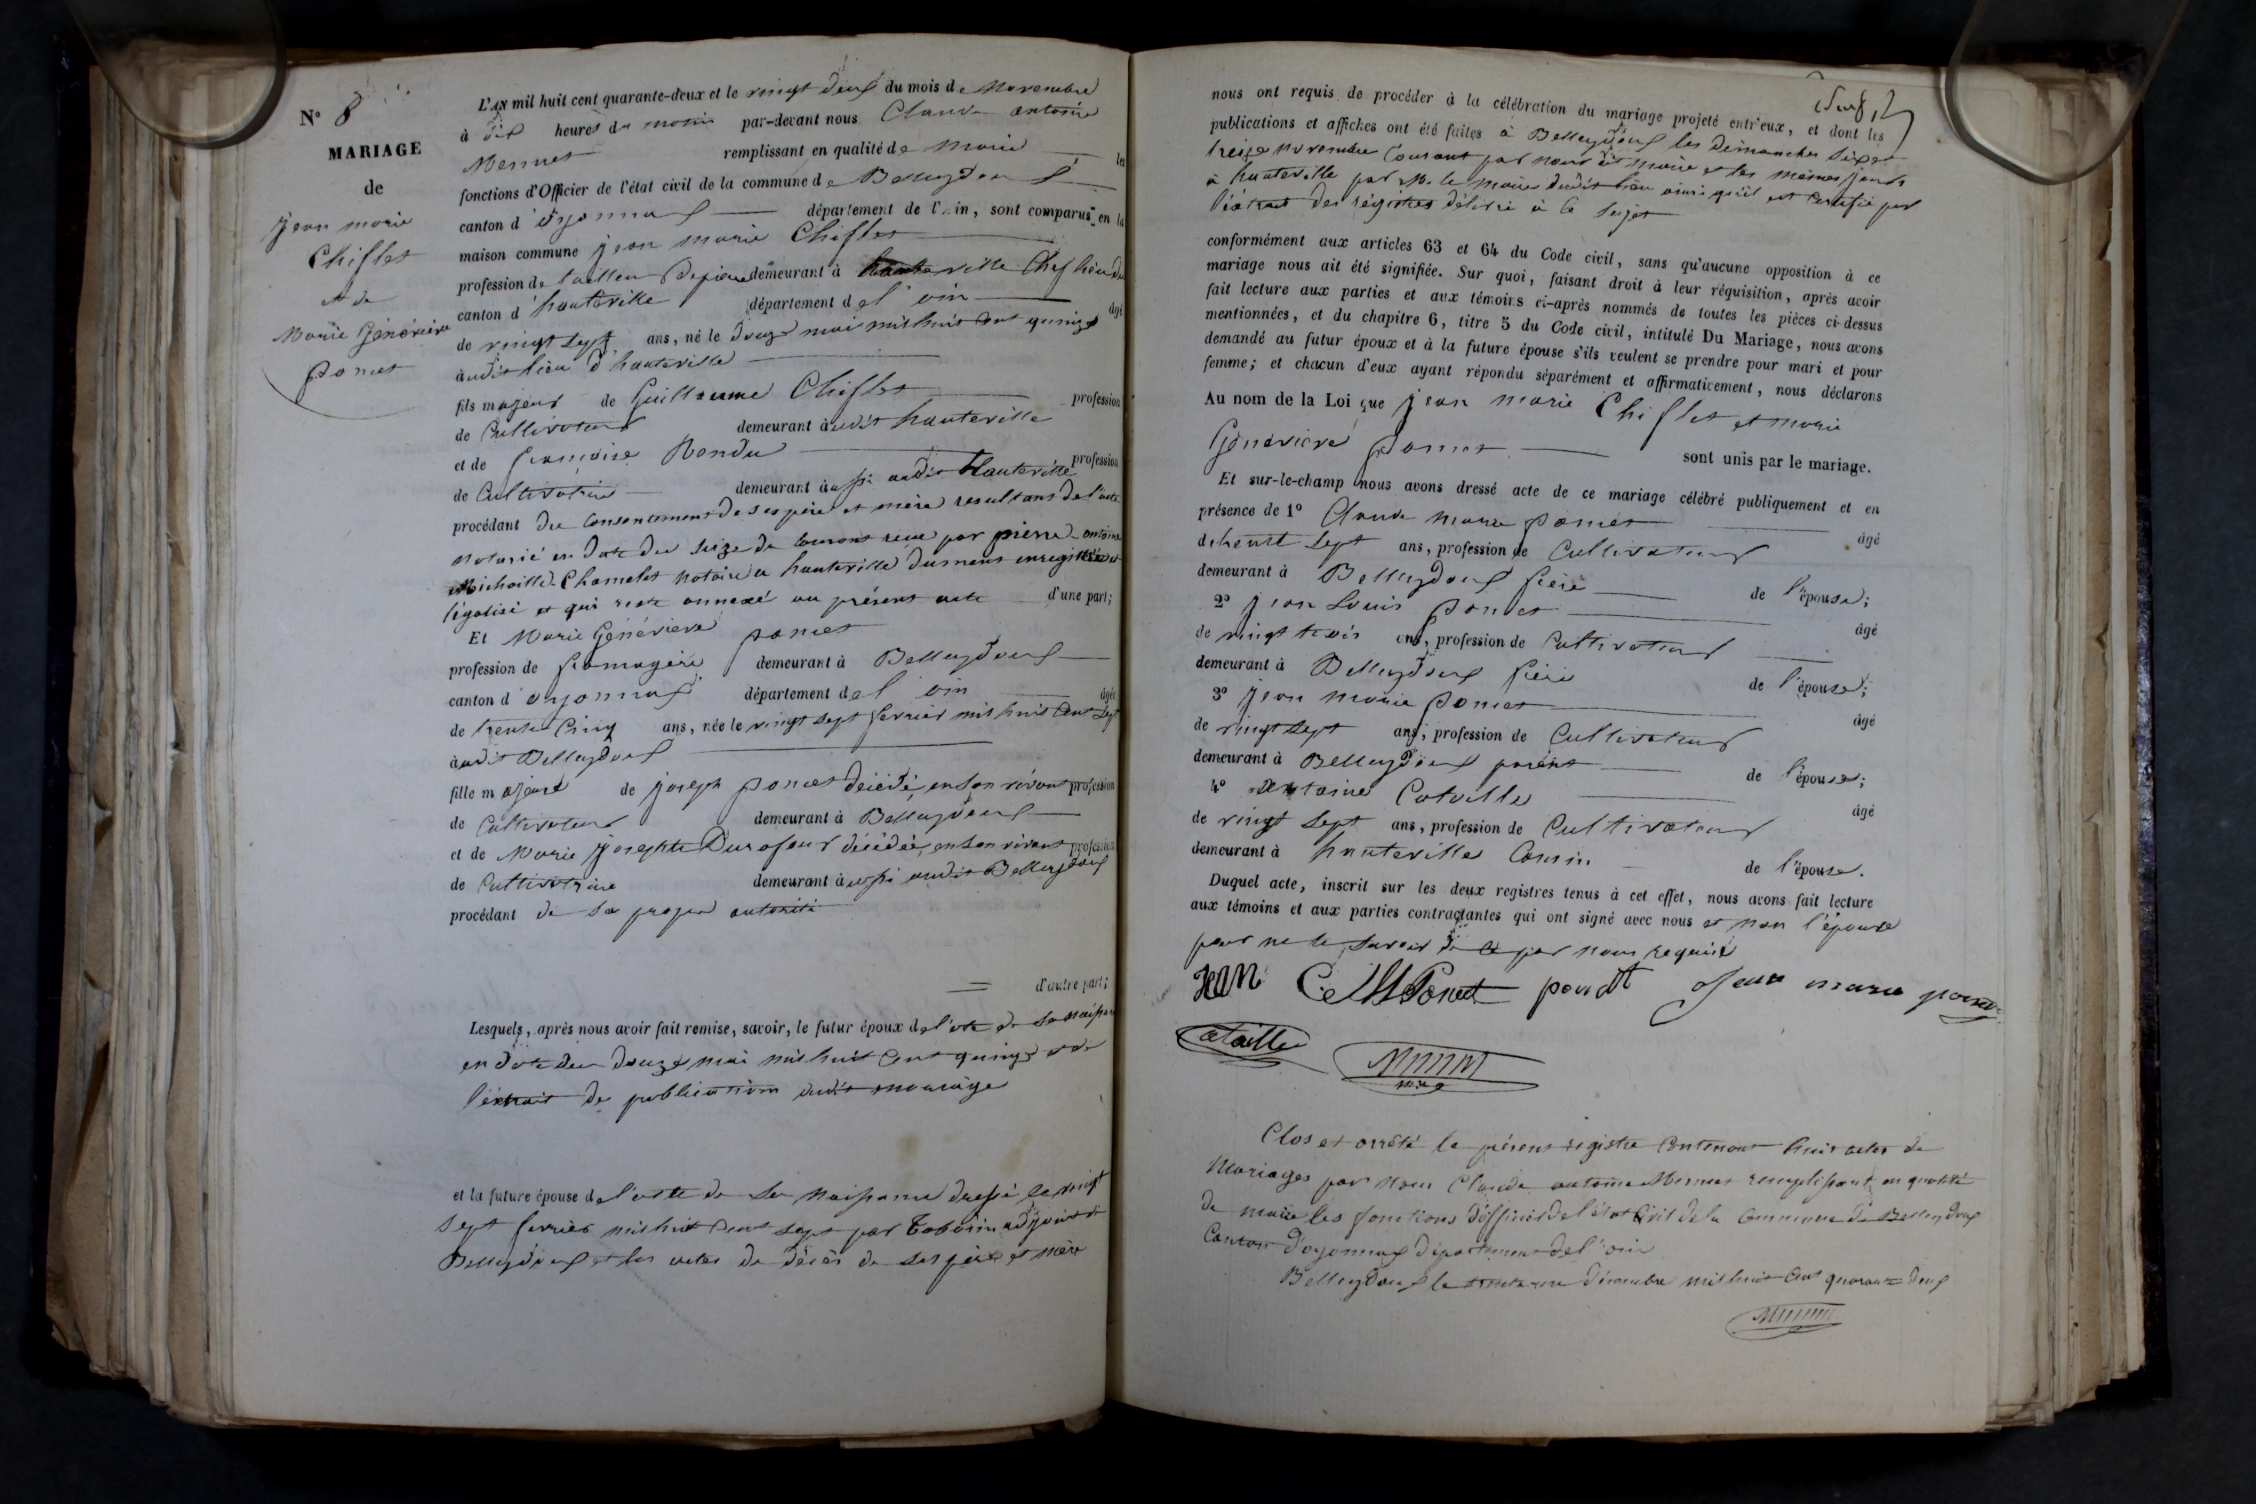 N° 8
MARIAGE
de
jean marie
Chiflet
et de
Marie Géneviève
ponet
L'an mil huit cent quarante-deux et le vingt deux du mois de Novembre
à dix heures du matin par-devant nous Claude antoine
Mermet remplissant en qualité de Maire les
fonctions d'Officier de l'état civil de la commune de Belleydoux
canton d'oyonnax département de l'Ain, sont comparus en la
maison commune jean marie Chiflet
profession de tailleur de pierre demeurant à hauteville Chef lieu du
canton d'hauteville département de l'ain âgé
de vingt sept ans, né le douze mai mil huit cent quinze
audit lieu d'hauteville
fils majeur de Guillaume Chiflet profession
de Cultivateur demeurant audit hauteville
et de françoise Rondu profession
de Cultivatrice demeurant aussi audit hauteville
procédant du Consentement de ses père et mère resultant de l'acte
notarié en date du seize du courant reçu par pierre antoine
Michaille Chamelet notaire à hauteville dument enregistré et
légalisé et qui reste annexé au présent acte d'une part;
Et Marie Géneviève ponet
profession de fromagère demeurant à Belleydoux
canton d'oyonnax département de l'ain âgée
de trente Cinq ans, née le vingt sept fevrier mil huit cent sept
audit Belleydoux
fille majeure de joseph ponet décédé, en son vivant profession
de Cultivateur demeurant à Belleydoux
et de Marie josephte Durafour décédée, en son vivant profession
de Cultivatrice demeurant aussi audit Belleydoux
procédant de sa propre autorité
d'autre part;
Lesquels, après nous avoir fait remise, savoir, le futur époux de l'acte de sa naissance
en date du douze mai mil huit cent quinze et de
l'extrait de publication dudit mariage
et la future épouse de l'acte de sa naissance dressé le vingt
sept fevrier mil huit cent sept par Taborin adjoint de
Belleydoux et les actes de décès de ses père et mère
nous ont requis de procéder à la célébration du mariage projeté entr'eux, et dont les
publications et affiches ont été faites à Belleydoux les Dimanches six et
treize novembre Courant par nous dit maire et les mêmes jours
à hauteville par M. le maire dudit lieu ainsi qu'il est certifié par
l'éxtrait des régistres délivré à ce sujet
conformément aux articles 63 et 64 du Code civil, sans qu'aucune opposition à ce
mariage nous ait été signifiée. Sur quoi, faisant droit à leur réquisition, après avoir
fait lecture aux parties et aux témoins ci-après nommés de toutes les pièces ci-dessus
mentionnées, et du chapitre 6, titre 5 du Code civil, intitulé Du Mariage, nous avons
demandé au futur époux et à la future épouse s'ils veulent se prendre pour mari et pour
femme; et chacun d'eux ayant répondu séparément et affirmativement, nous déclarons
Au nom de la Loi que jean marie Chiflet et marie
Géneviève ponet sont unis par le mariage.
Et sur-le-champ nous avons dressé acte de ce mariage célébré publiquement et en
présence de 1° Claude marie ponet âgé
de trente sept ans, profession de Cultivateur
demeurant à Belleydoux frère de l'épouse;
2° jean Louis ponet âgé
de vingt trois ans, profession de Cultivateur
demeurant à Belleydoux frère de l'épouse;
3° jean marie ponet âgé
de vingt sept ans, profession de Cultivateur
demeurant à Belleydoux parent de l'épouse;
4° antoine Cotaille âgé
de vingt sept ans, profession de Cultivateur
demeurant à hauteville Cousin de l'épouse.
Duquel acte, inscrit sur les deux registres tenus à cet effet, nous avons fait lecture
aux témoins et aux parties contractantes qui ont signé avec nous et non l'épouse
pour ne le savoir de ce par nous requise
Jean C M Ponet ponet Jean marie ponet
Cotaille
Mermet
Clos et arrêté le présent registre Contenant huit actes de
Mariages par Nous Claude antoine Mermet remplissant en qualité
de maire les fonctions d'officier de l'état Civil de la commune de Belleydoux
Canton d'oyonnax département de l'ain
Belleydoux le trente un décembre mil huit cent quarante deux
Mermet